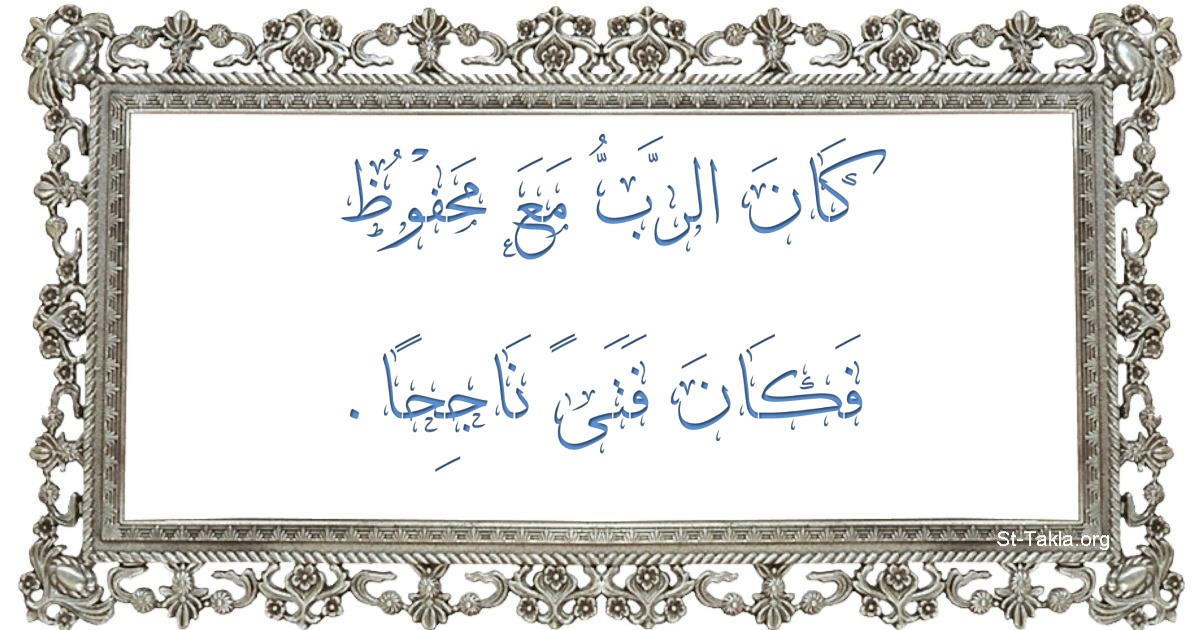 كَانَ الرَّبُّ مَعَ مَحْفُوْظٍ
فَكَانَ فَتَىً نَاجِحًا .
St-Takla.org